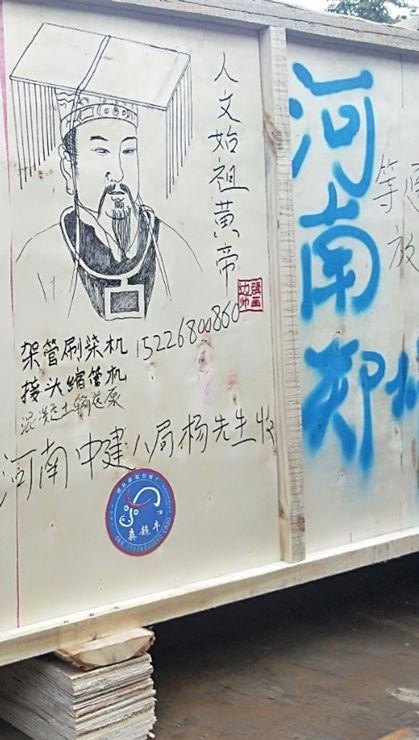 人文始祖黄帝
架管刷柒机 15226800860
接头缩管机
混凝土输送泵
河南中建八局杨先生收
森超牛
河南郑州
等
放